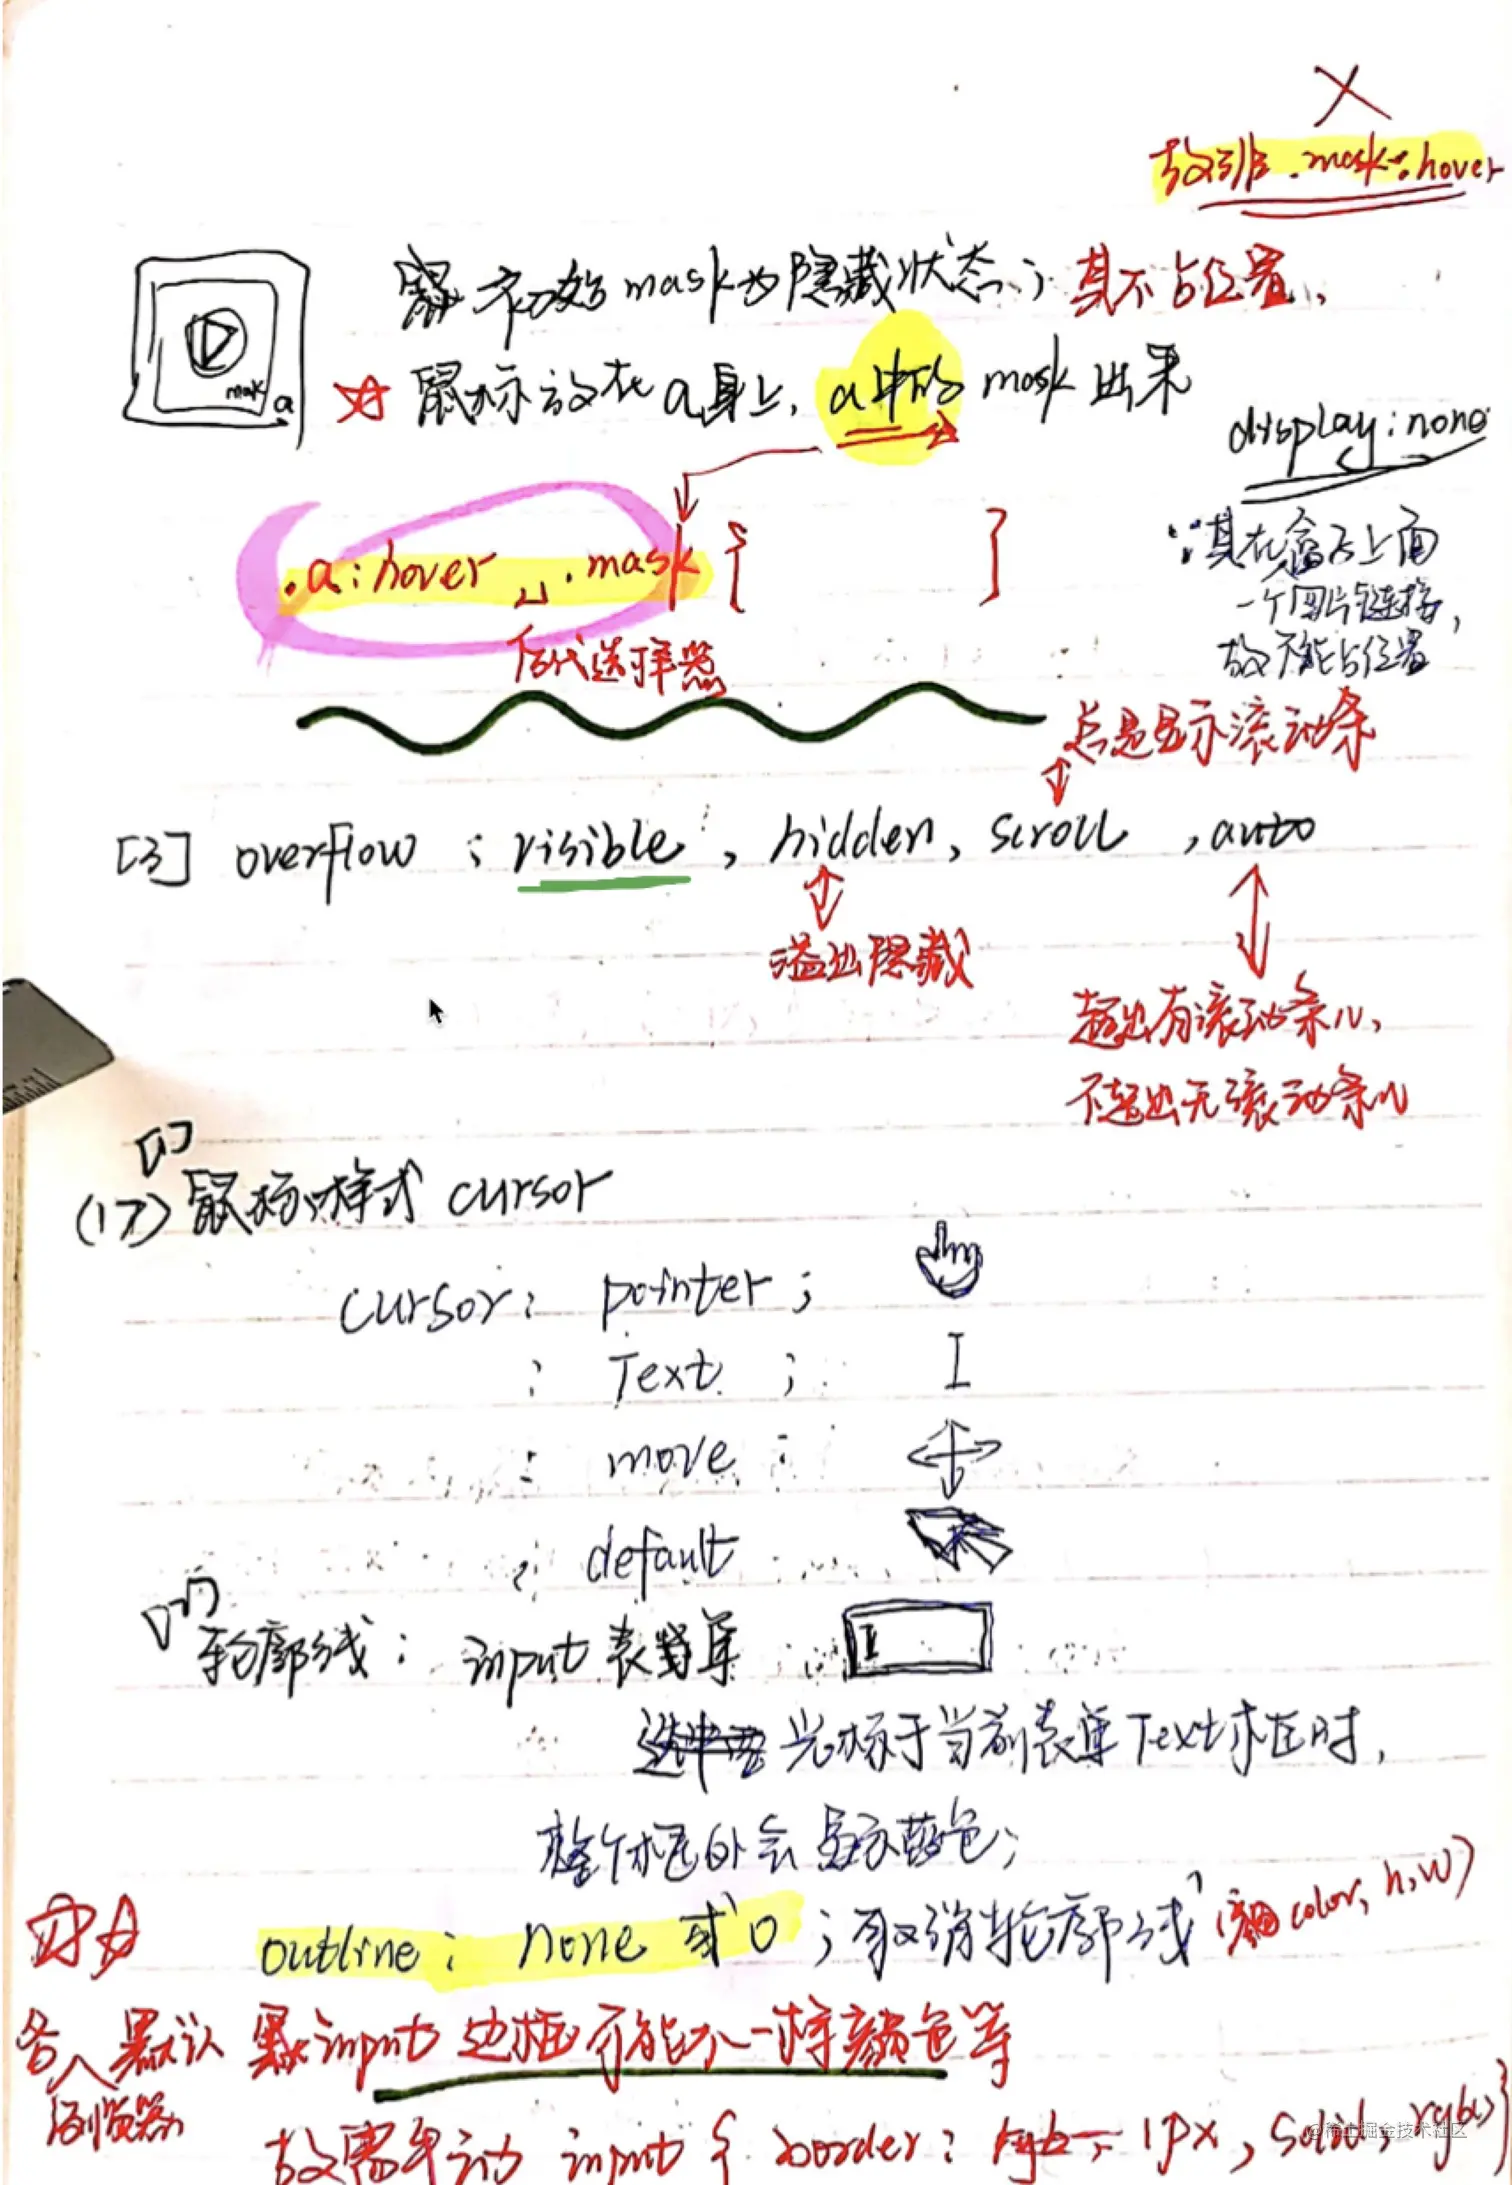 故非.mask:hover
初始mask为隐藏状态;其不占位置,
mask
a
鼠标放在a身上,a中的mask出来
display:none
.a:hover .mask{ }
∵其在盒子上面
一个图片链接,
故不能占位置
后代选择器
总是显示滚动条
[3] overflow : visible, hidden, scroll ,auto
溢出隐藏
超出有滚动条,
不超出无滚动条
[1]
(17)鼠标样式 cursor
cursor: pointer;
: Text ;
: move ;
: default
轮廓线: input 表单
光标于当前表单Text框时,
整个框外会显示蓝色;
outline: none 或 0 ;取消轮廓线 color, h, w)
各 默认 input 边框可能不一样颜色等
浏览器
故需手动 input { border: 1px, Solid, rgb()}
@稀土掘金技术社区